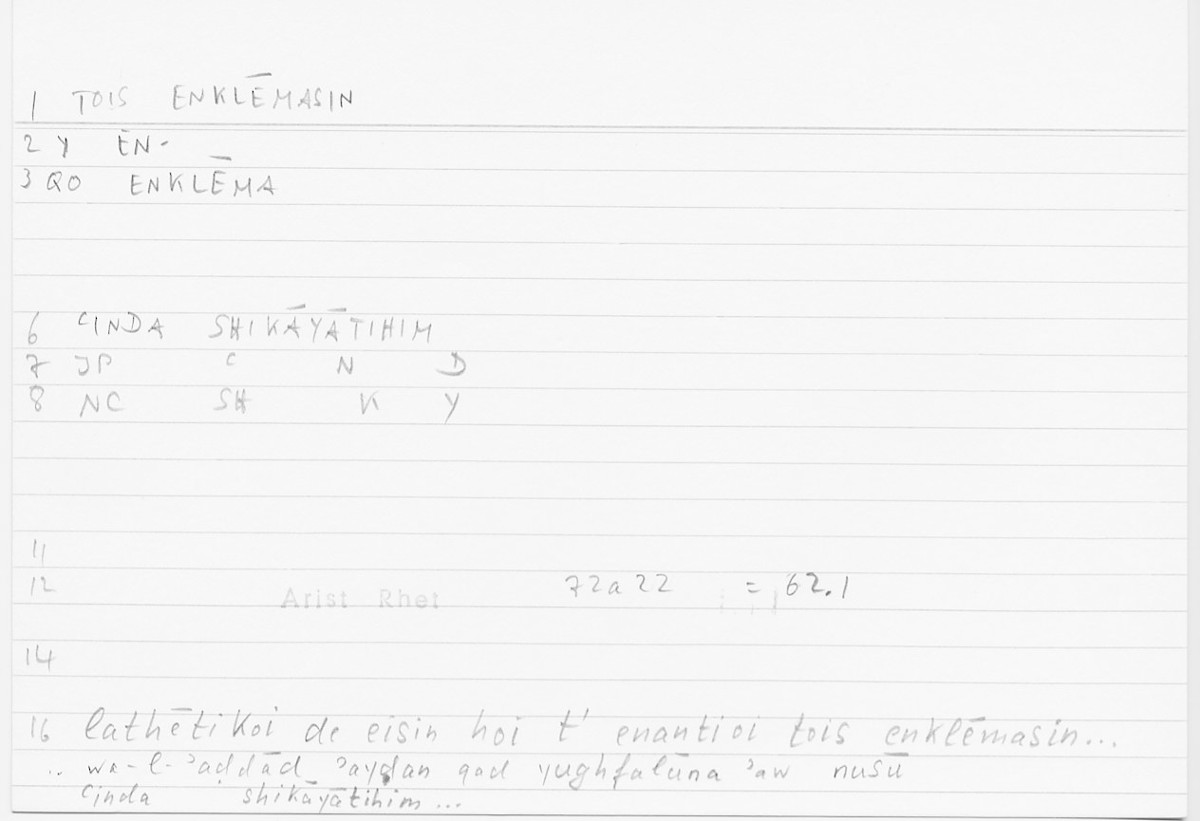 1 TOIS ENKLĒMASIN
2 Y EN-
3 QO ENKLĒMA
6 ʿINDA SHIKĀYĀTIHIM
7 JP ʿ N D
8 NC SH K Y
11
12 Arist Rhet 72a22 = 62.1
14
16 lathētikoi de eisin hoi t' enantioi tois enklēmasin...
.. wa-l-ʾaḍdād ʾayḍan qad yughfalūna ʾaw nusū
ʿinda shikāyātihim ...